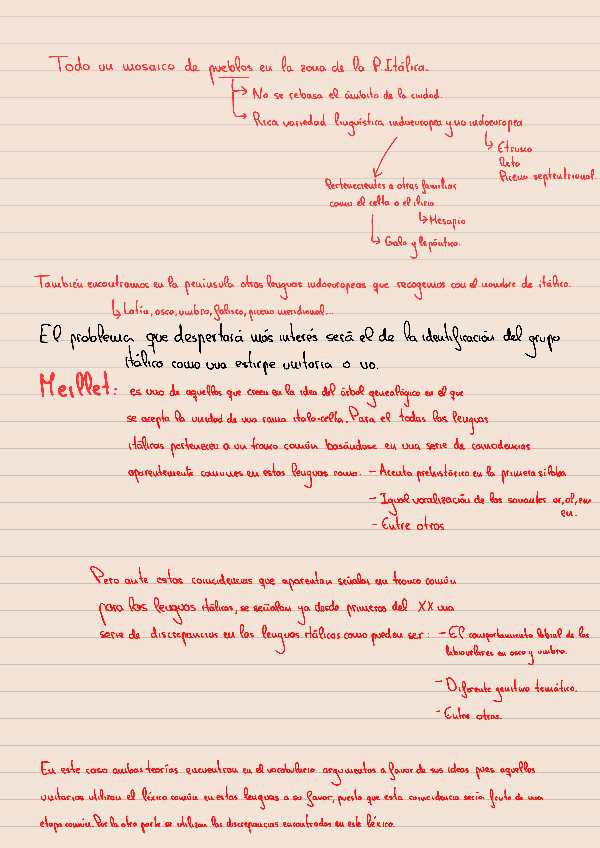 Todo un mosaico de pueblos en la zona de la P.Itálica.
No se rebasa el ámbito de la ciudad.
Rica variedad lingüística indoeuropea y no indoeuropea.
Etrusco
Reto
Piceno septentrional.
Pertenecientes a otras familias
como el celta o el ilirio
Mesapio
Galo y lepóntico.
También encontramos en la península otras lenguas indoeuropeas que recogemos con el nombre de itálico.
Latín, osco, umbro, falisco, piceno meridional...
El problema que despertará más interés será el de la identificación del grupo
itálico como una estirpe unitaria o no.
Meillet: es uno de aquellos que creen en la idea del árbol genealógico en el que
se acepta la unidad de una rama italo-celta. Para el todas las lenguas
itálicas pertenecen a un tronco común basándose en una serie de coincidencias
aparentemente comunes en estas lenguas como: - Acento prehistórico en la primera sílaba
- Igual vocalización de las sonantes or, ol, em
en.
- Entre otros
Pero ante estas coincidencias que aparentan señalar un tronco común
para las lenguas itálicas, se señalan ya desde primeros del XX una
serie de discrepancias en las lenguas itálicas como pueden ser: - El comportamiento labial de las
labiovelares en osco y umbro.
- Diferente genitivo temático.
- Entre otras.
En este caso ambas teorías encuentran en el vocabulario argumentos a favor de sus ideas pues aquellos
unitarios utilizan el léxico común en estas lenguas a su favor, puesto que esta coincidencia sería fruto de una
etapa común. Por la otra parte se utilizan las discrepancias encontradas en este léxico.